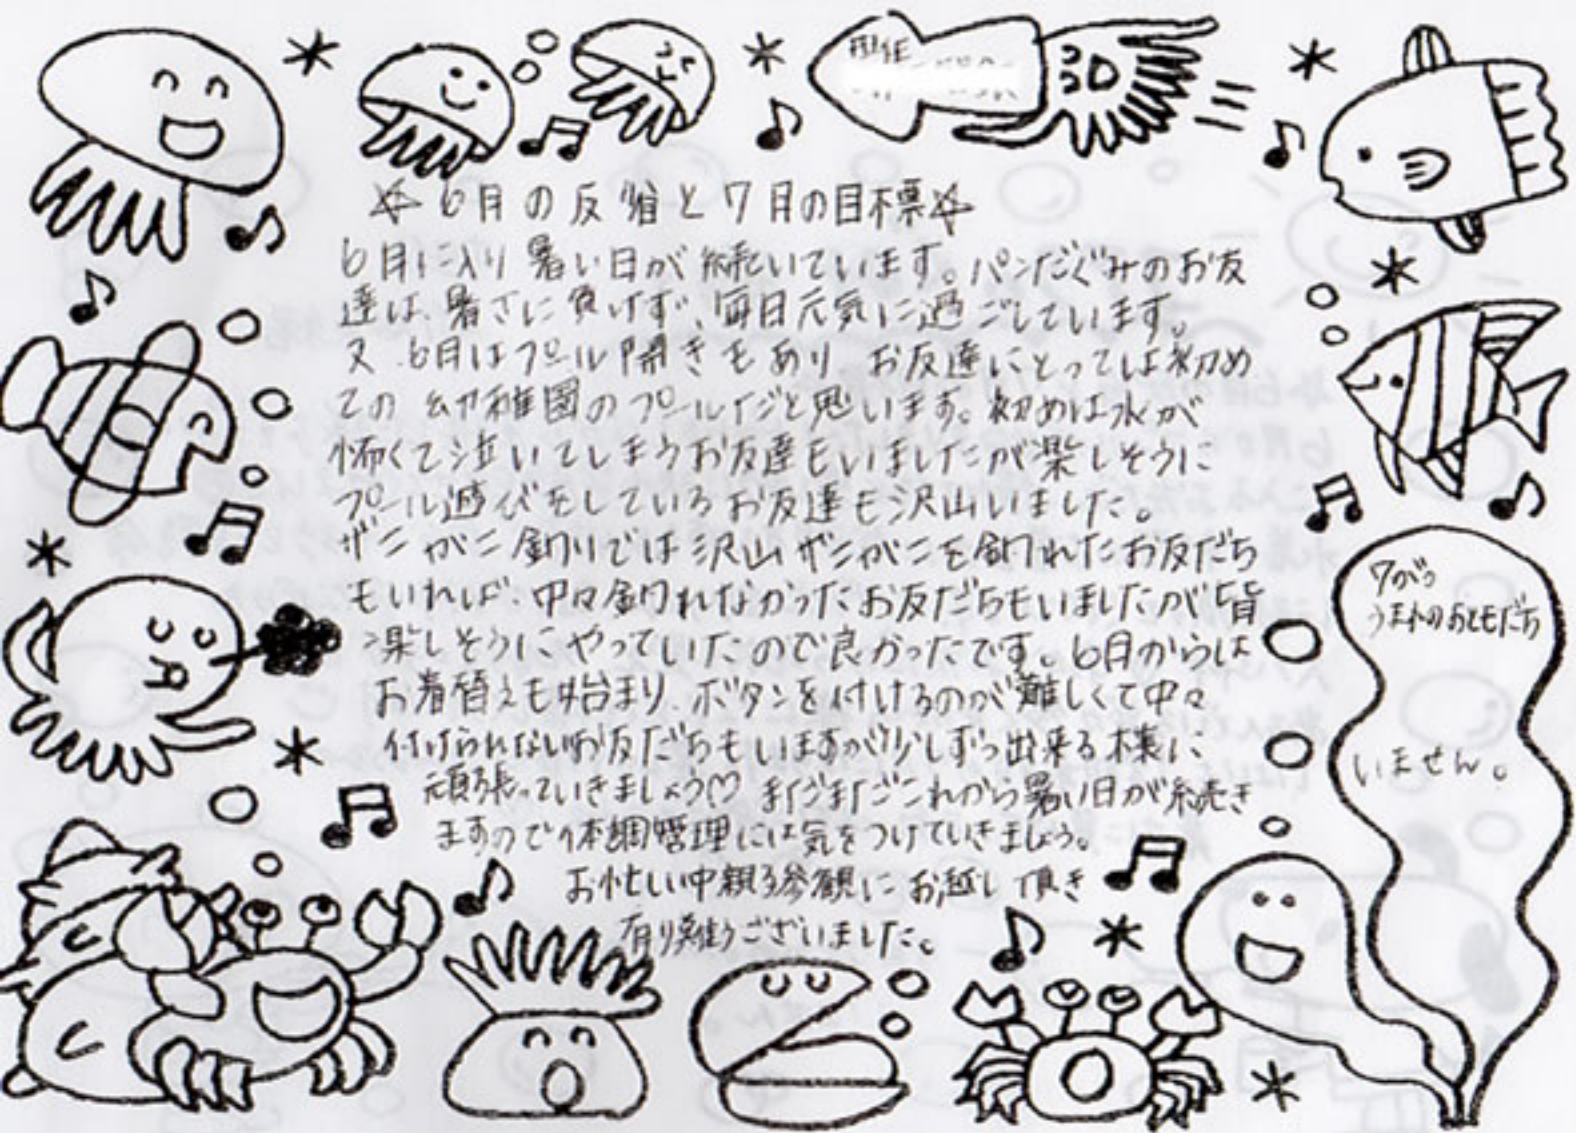 制作
☆6月の反省と7月の目標☆
6月に入り暑い日が続いています。パンだぐみのお友
達は、暑さに負けず、毎日元気に過ごしています。
又、6月はプール開きもあり、お友達にとっては初め
ての幼稚園のプールだと思います。初めは水が
怖くて泣いてしまうお友達もいましたが楽しそうに
プール遊びをしているお友達も沢山いました。
ザニがニ釣りでは沢山ザニがニを釣れたお友だち
もいれば、中々釣れなかったお友だちもいましたが皆
楽しそうにやっていたので良かったです。6月からは
お着替えも始まり、ボタンを付けるのが難しくて中々
付けられないお友だちもいますが少しずつ出来る様に
頑張っていきましょう♡ まだまだこれから暑い日が続き
ますので体調管理には気をつけていきましょう。
お忙しい中親子参観にお越し頂き
有り難うございました。
7がつ
うまれのおともだち
いません。